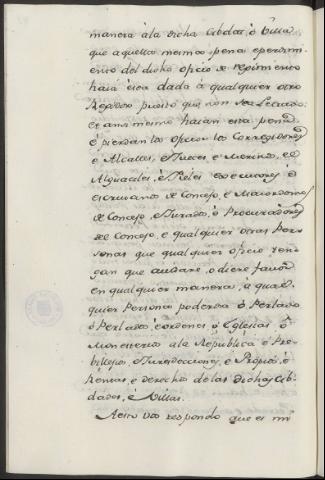 manera àla dicha Cibdat, ò Villa
que aquella mesma pena e perdimi-
ento del dicho oficio de regimiento
haia è sea dada à qualquier otro
Regidor puesto que non sea Letrado.
Et ansi mesmo haian esta pena
è pierdan los oficios los Corregidores
è Alcaldes, è Jueces e Merinos, e
Alguaciles, è Fieles executores è
escrivanos de Concejo, è Maiordomos
de Concejo, è Jurados, è Procuradores
de Concejo, e qualquier otras Per-
sonas que qualquier oficio ten-
gan que aiudare, o diere favor
en qualquier manera, à qual-
quier Persona poderosa ò Perlado
ò Perlados, è ordenes ò Eglesias, ò
Monesterios a la Republica è Pre-
billejos, è Jurisdecciones, e Propios, è
Rentas, e derechos delas dichas Cib-
dades, è Villas.
A esto vos respondo que es mi